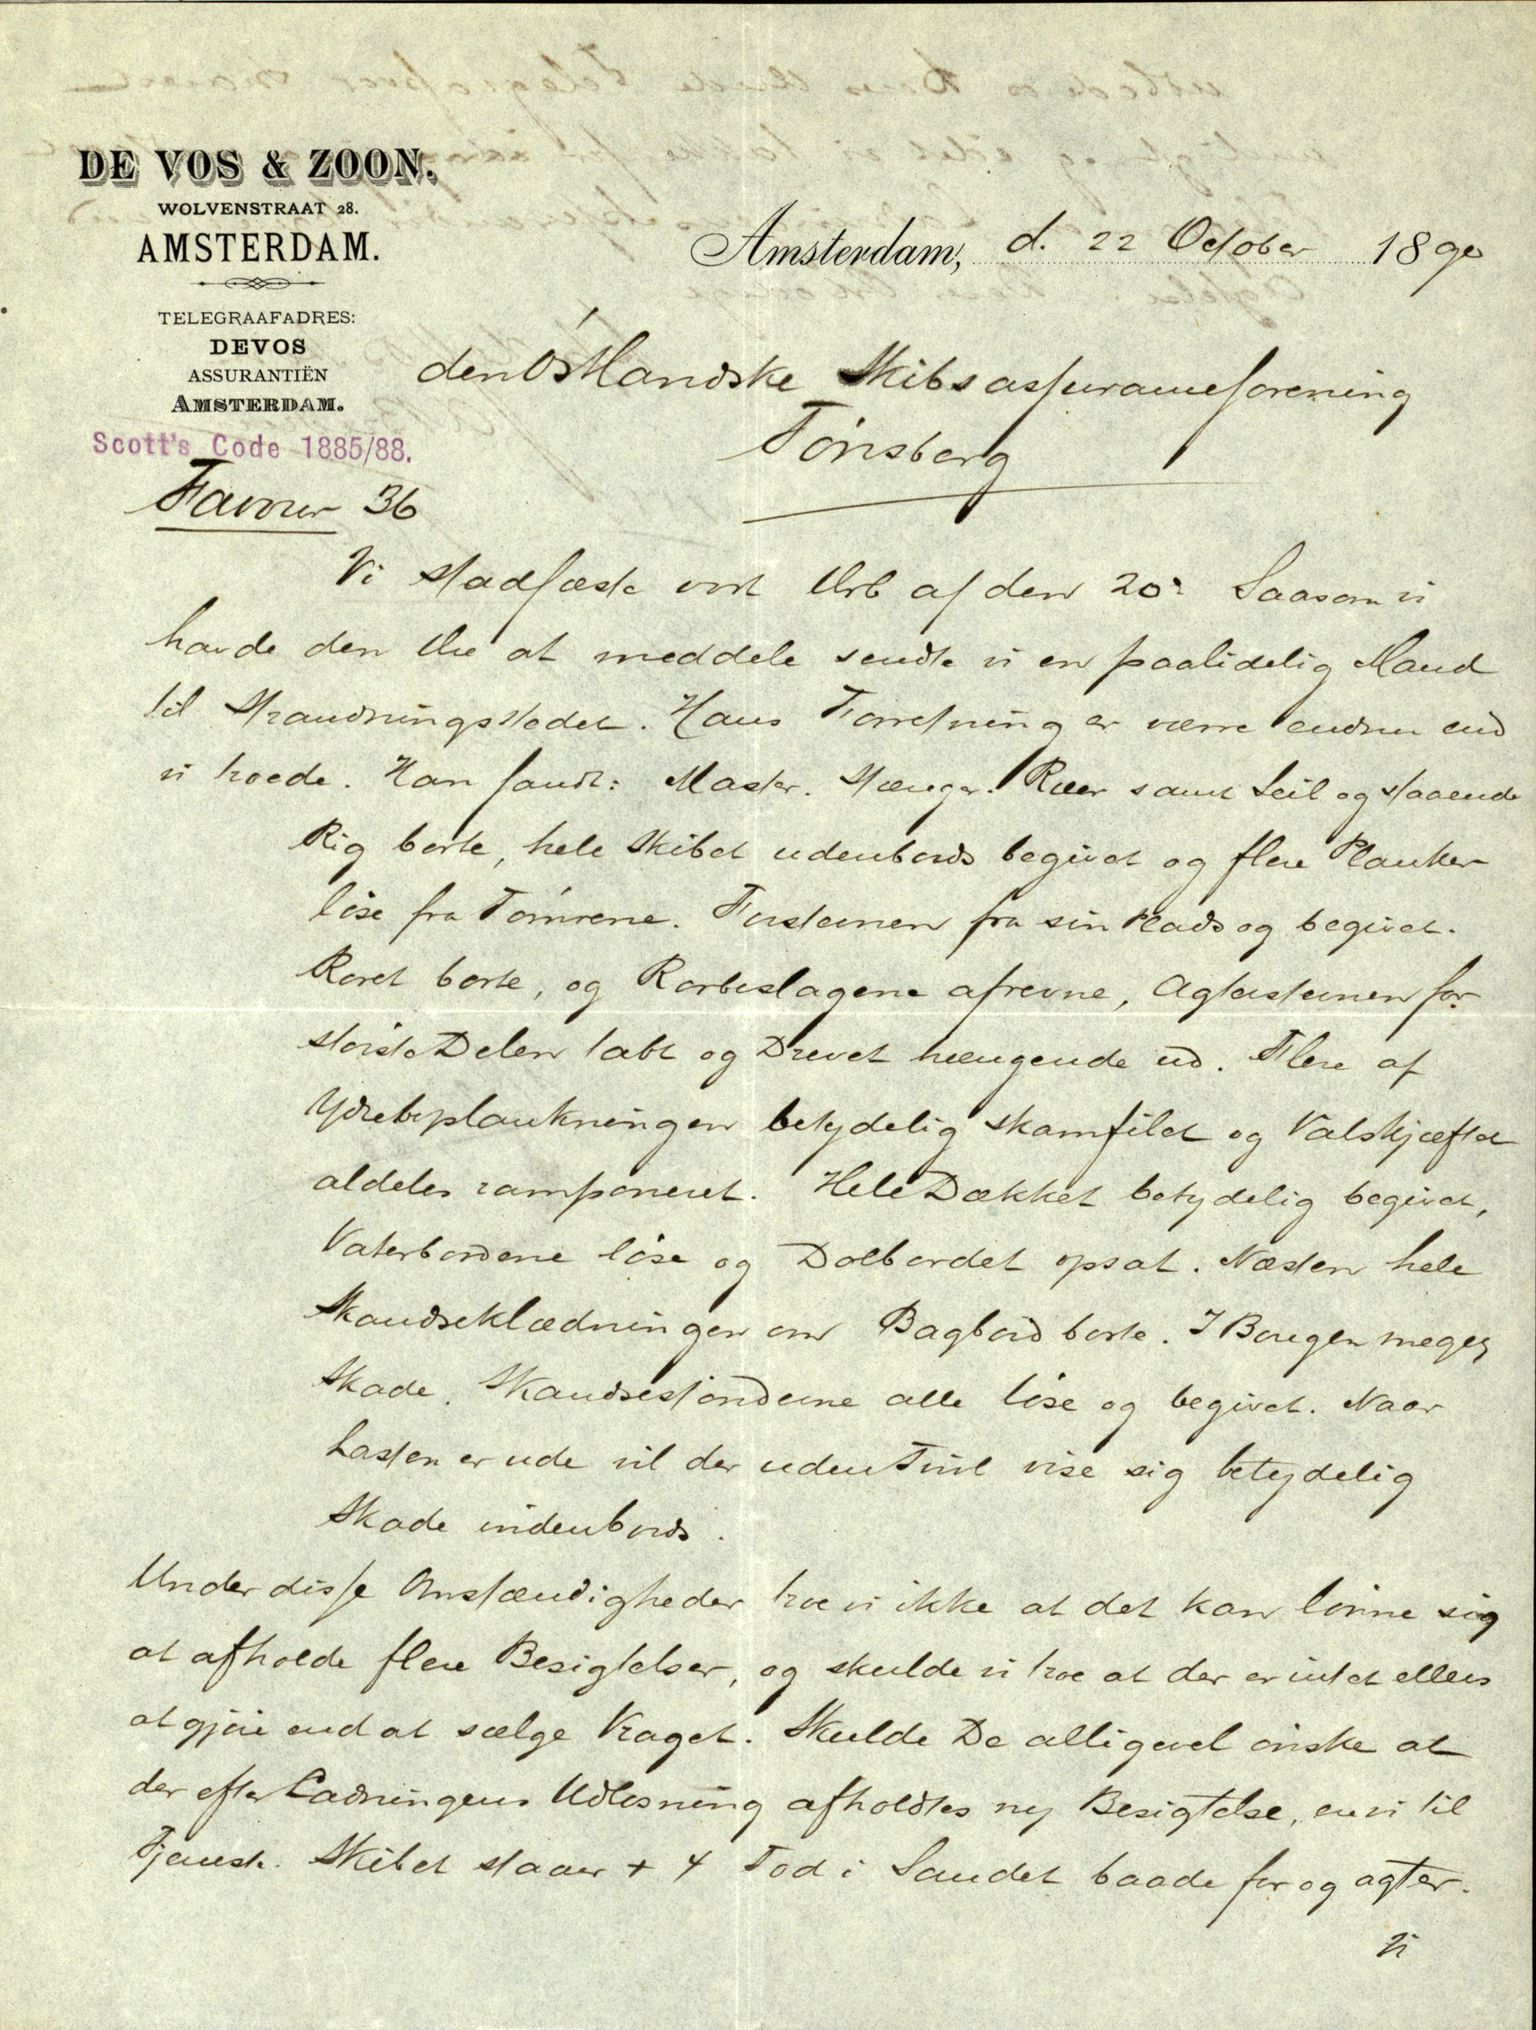 DE VOS & ZOON.
WOLVENSTRAAT 28.
AMSTERDAM.
TELEGRAAFADRES:
DEVOS
ASSURANTIËN
AMSTERDAM.
Scott's Code 1885/88.
Amsterdam, d. 22 October 1890
den Östlandske Skibsassuranceforening
Tönsberg
Favour 36
Vi stadfæste vort af den 20. Saasom vi
havde den Ære at meddele sendte vi en paalidelig Mand
til Strandningsstedet. Hans Forretning er værre endnu end
vi troede. Han fandt: Master. Stænger. Ræer samt Seil og staaende
Rig borte, hele Skibet udenbords begivet og flere Planker
löse fra Tömrene. Forstevnen fra sin Plads og begivet.
Roret borte, og Rorbeslagene afrevne, Agterstevnen for
störste Delen tabt og Drevet hængende ud. Flere af
Ydrebeplankningen betydelig skamfilet og Valskjæftet
aldeles ramponeret. Hele Dækket betydelig begivet,
Vaterbordene löse og Dolbordet opsat. Næsten hele
Skandseklædningen om Bagbord borte. I Bougen megen
Skade. Skandsestönderne alle löse og begivet. Naar
Lasten er ude vil der uden Tvivl vise sig betydelig
Skade indenbords.
Under disse Omstændigheder troe vi ikke at det kan lönne sig
at afholde flere Besigtelser, og skulde vi troe at der er intet ellers
at gjöre end at sælge Vraget. Skulde De alligevel önske at
der efter Ladningens Udlosning afholdtes ny Besigtelse, ere vi til
Tjeneste. Skibet staaer + 4 Fod i Sandet baade for og agter.
Vi